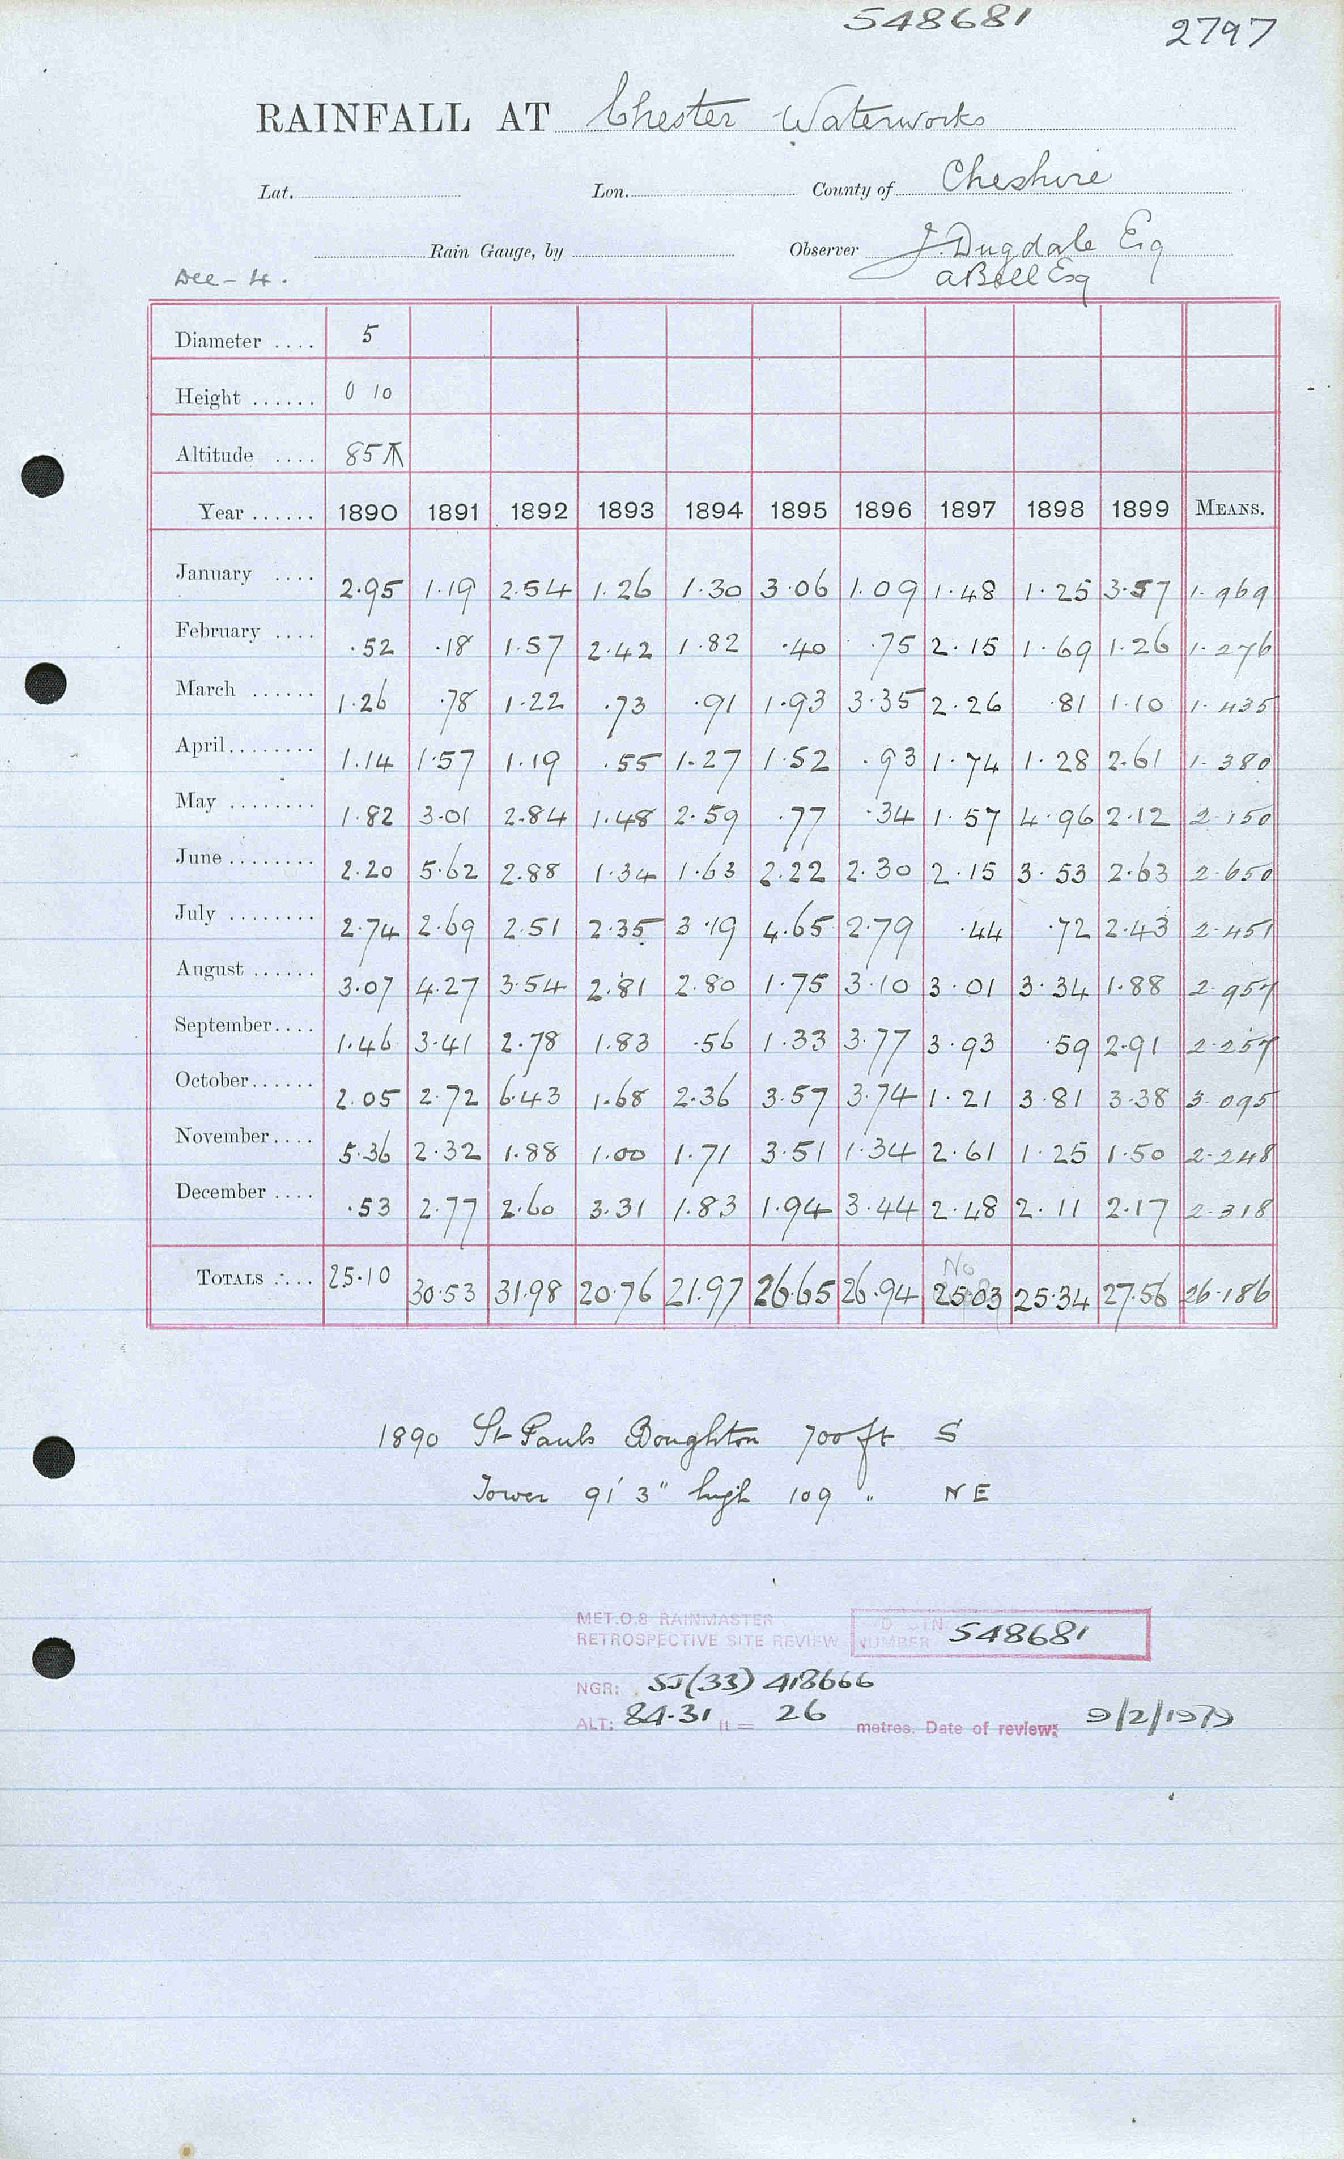 548681 2797
RAINFALL AT Chester Waterworks
Lat. Lon. County of Cheshire
Rain Gauge, by Observer J. Dugdale Esq
Dec - 4. A Bell Esq
Diameter .... 5
Height ...... 0 10
Altitude .... 85
Year ...... 1890 1891 1892 1893 1894 1895 1896 1897 1898 1899 MEANS.
January .... 2.95 1.19 2.54 1.26 1.30 3.06 1.09 1.48 1.25 3.57 1.969
February .... .52 .18 1.57 2.42 1.82 .40 .75 2.15 1.69 1.26 1.276
March ...... 1.26 .78 1.22 .73 .91 1.93 3.35 2.26 .81 1.10 1.435
April ........ 1.14 1.57 1.19 .55 1.27 1.52 .93 1.74 1.28 2.61 1.380
May ........ 1.82 3.01 2.84 1.48 2.59 .77 .34 1.57 4.96 2.12 2.150
June ........ 2.20 5.62 2.88 1.34 1.63 2.22 2.30 2.15 3.53 2.63 2.650
July ........ 2.74 2.69 2.51 2.35 3.19 4.65 2.79 .44 .72 2.43 2.451
August ...... 3.07 4.27 3.54 2.81 2.80 1.75 3.10 3.01 3.34 1.88 2.957
September .... 1.46 3.41 2.78 1.83 .56 1.33 3.77 3.93 .59 2.91 2.257
October ...... 2.05 2.72 6.43 1.68 2.36 3.57 3.74 1.21 3.81 3.38 3.095
November .... 5.36 2.32 1.88 1.00 1.71 3.51 1.34 2.61 1.25 1.50 2.248
December .... .53 2.77 2.60 3.31 1.83 1.94 3.44 2.48 2.11 2.17 2.318
No
TOTALS .... 25.10 30.53 31.98 20.76 21.97 26.65 26.94 25.03 25.34 27.56 26.186
1890 St Pauls Boughton 700 ft S
Tower 91' 3" high 109 " NE
MET.O.8 RAINMASTER
RETROSPECTIVE SITE REVIEW NUMBER 548681
NGR: SJ(33) 418666
ALT: 84.31 ft = 26 metres. Date of review: 9/2/1979